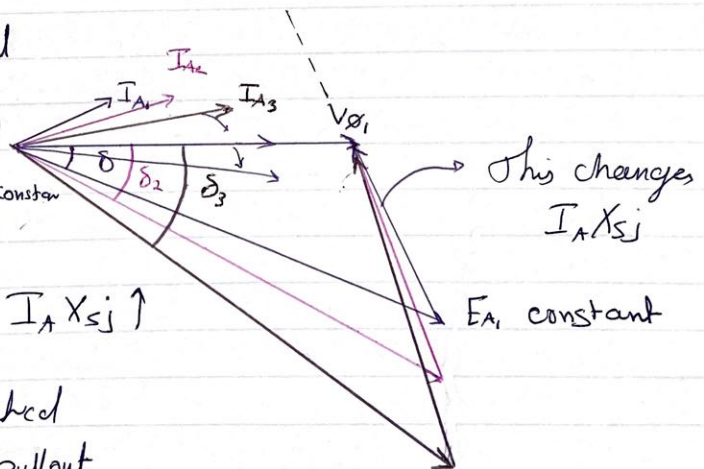 I_A2
I_A1
I_A3
V_ø1
δ
δ_2
δ_3
This changes
I_A X_S j
I_A X_S j ↑
E_A1 constant